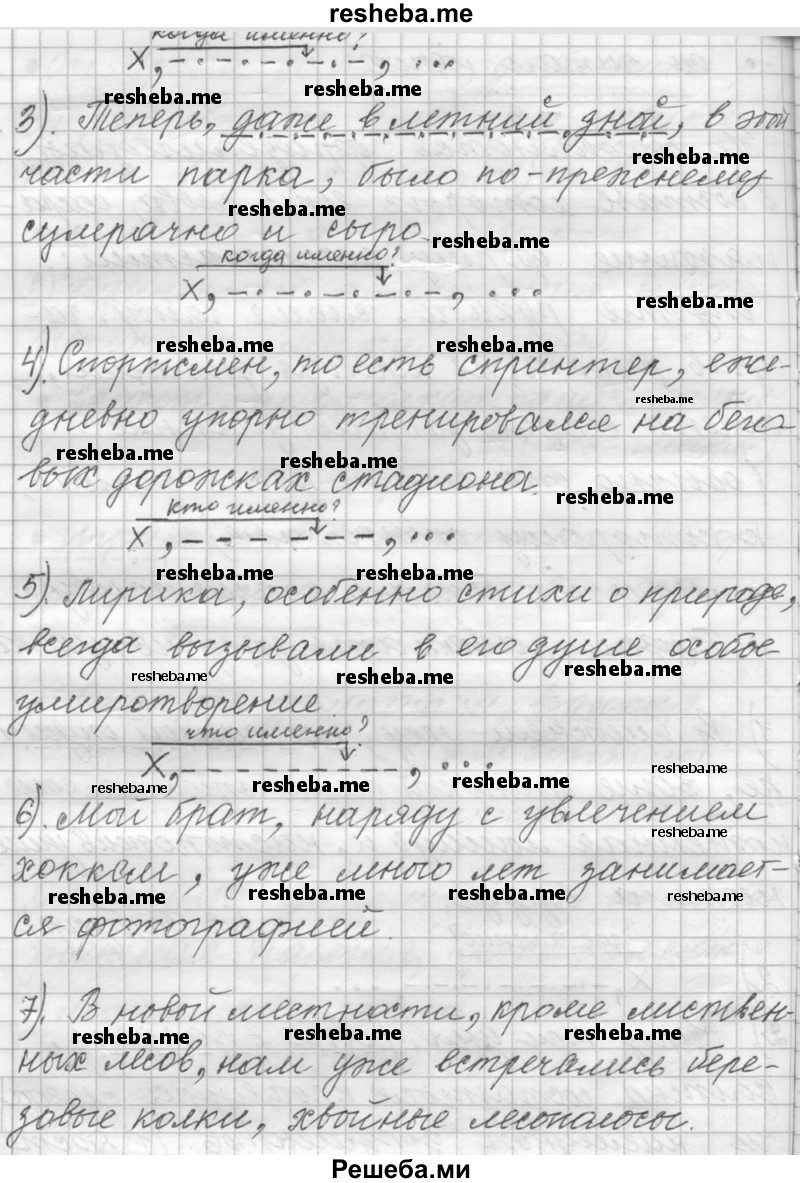 resheba.me
когда именно?
X, – · – · – · – · –, ...
resheba.me
resheba.me
3). Теперь, даже в летний зной, в этой
resheba.me
части парка, было по-прежнему
resheba.me
сумрачно и сыро
resheba.me
когда именно?
X, – · – · – · – · –, ...
resheba.me
resheba.me
resheba.me
4). Спортсмен, то есть спринтер, еже-
resheba.me
дневно упорно тренировался на бего-
resheba.me
resheba.me
вых дорожках стадиона.
resheba.me
кто именно?
X, – – – – – –, ...
resheba.me
resheba.me
5). Лирика, особенно стихи о природе,
всегда вызывали в его душе особое
resheba.me
resheba.me
resheba.me
умиротворение
что именно?
X, – – – – – – – –, ...
resheba.me
resheba.me
resheba.me
resheba.me
6). Мой брат, наряду с увлечением
resheba.me
хоккеем, уже много лет занимает-
resheba.me
resheba.me
resheba.me
resheba.me
ся фотографией.
7). В новой местности, кроме листвен-
resheba.me
resheba.me
resheba.me
ных лесов, нам уже встречались бере-
зовые колки, хвойные лесополосы.
Решеба.ми